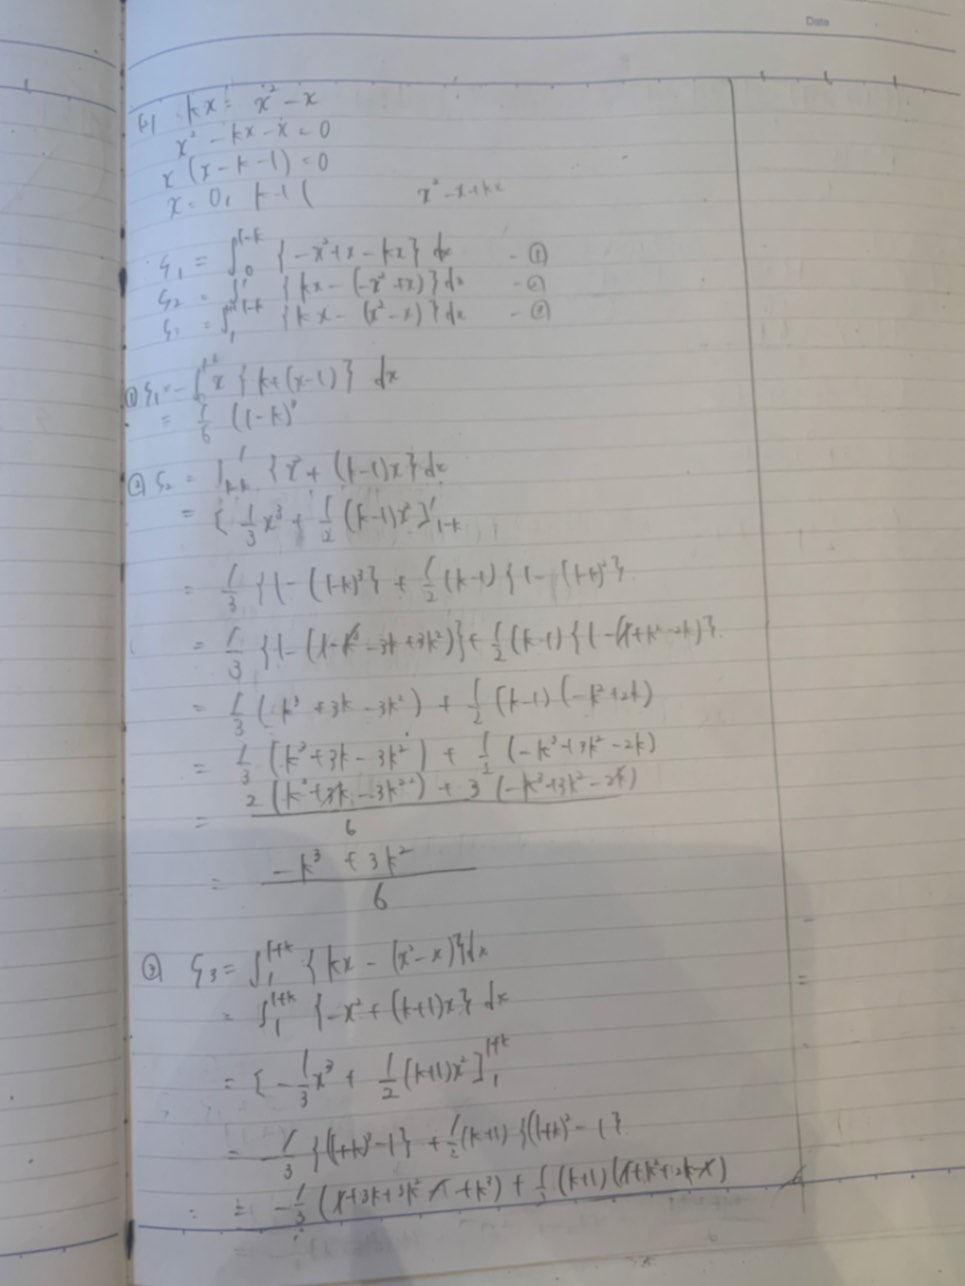 Date
kx = x² - x
x² - kx - x = 0
x (x - k - 1) = 0
x = 0, k+1 (
x² - x + kx
S₁ = ∫₀^{1-k} {-x² + x - kx} dx - ①
S₂ = ∫ {kx - (-x² + x)} dx - ②
S₃ = ∫₁ {kx - (x² - x)} dx - ③
① S₁ = - ∫ x {k + (x-1)} dx
= 1/6 (1-k)³
② S₂ = ∫_{1-k}^1 {x² + (k-1)x} dx
= [1/3 x³ + 1/2 (k-1)x²]_{1-k}^1
= 1/3 {1 - (1-k)³} + 1/2 (k-1) {1 - (1-k)²}
= 1/3 {1 - (1 - k³ - 3k + 3k²)} + 1/2 (k-1) {1 - (1 + k² - 2k)}
= 1/3 (k³ + 3k - 3k²) + 1/2 (k-1) (-k² + 2k)
= 1/3 (k³ + 3k - 3k²) + 1/2 (-k³ + 3k² - 2k)
= 2 (k³ + 3k - 3k²) + 3 (-k³ + 3k² - 2k) / 6
= -k³ + 3k² / 6
③ S₃ = ∫₁^{1+k} {kx - (x² - x)} dx
= ∫₁^{1+k} {-x² + (k+1)x} dx
= [-1/3 x³ + 1/2 (k+1)x²]₁^{1+k}
= -1/3 {(1+k)³ - 1} + 1/2 (k+1) {(1+k)² - 1}
= -1/3 (1 + 3k + 3k² - 1 + k³) + 1/2 (k+1) (1 + k² + 2k - 1)